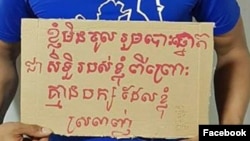 ខ្ញុំមិនចូលរួមបោះឆ្នោត
ជាសិទ្ធិរបស់ខ្ញុំ ពីព្រោះ
គ្មានបក្សដែលខ្ញុំ
ស្រលាញ់
Facebook